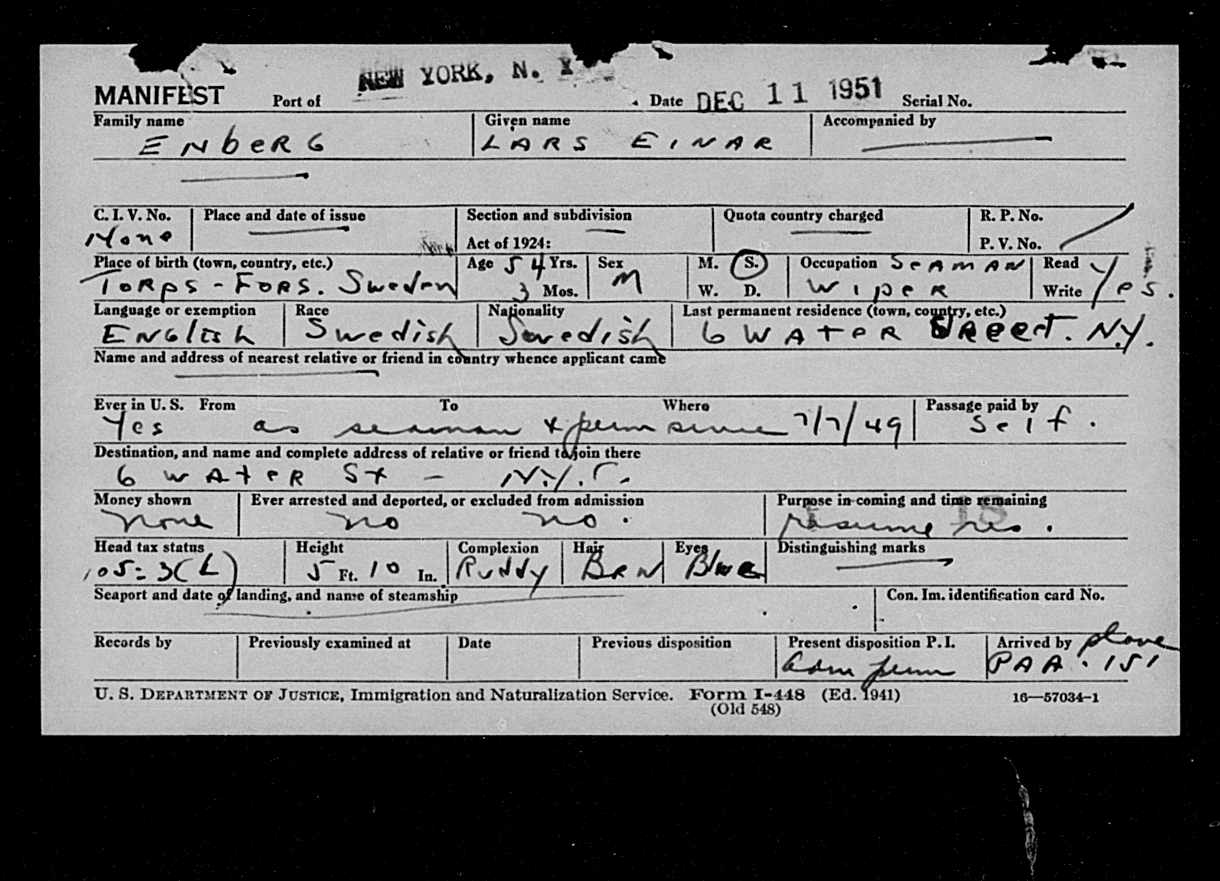 NEW YORK, N. Y.
MANIFEST Port of Date DEC 11 1951 Serial No.
Family name Given name Accompanied by
ENbERG LARS EINAR
C. I. V. No. Place and date of issue Section and subdivision Quota country charged R. P. No.
None Act of 1924: P. V. No.
Place of birth (town, country, etc.) Age 54 Yrs. Sex M. S. Occupation SEAMAN Read
TORPS-FORS. Sweden 3 Mos. M W. D. WIPER Write Yes.
Language or exemption Race Nationality Last permanent residence (town, country, etc.)
ENGLISH Swedish Swedish 6 WATER STREET. N.Y.
Name and address of nearest relative or friend in country whence applicant came
Ever in U. S. From To Where Passage paid by
Yes as seaman & perm since 7/7/49 Self.
Destination, and name and complete address of relative or friend to join there
6 WATER St - N.Y.C.
Money shown Ever arrested and deported, or excluded from admission Purpose in coming and time remaining
none no no. resume res.
Head tax status Height Complexion Hair Eyes Distinguishing marks
105:3(L) 5 Ft. 10 In. Ruddy BRN Blue
Seaport and date of landing, and name of steamship Con. Im. identification card No.
Records by Previously examined at Date Previous disposition Present disposition P. I. Arrived by plane
adm perm PAA. 151
U. S. DEPARTMENT OF JUSTICE, Immigration and Naturalization Service. Form I-448 (Ed. 1941) 16—57034-1
(Old 548)